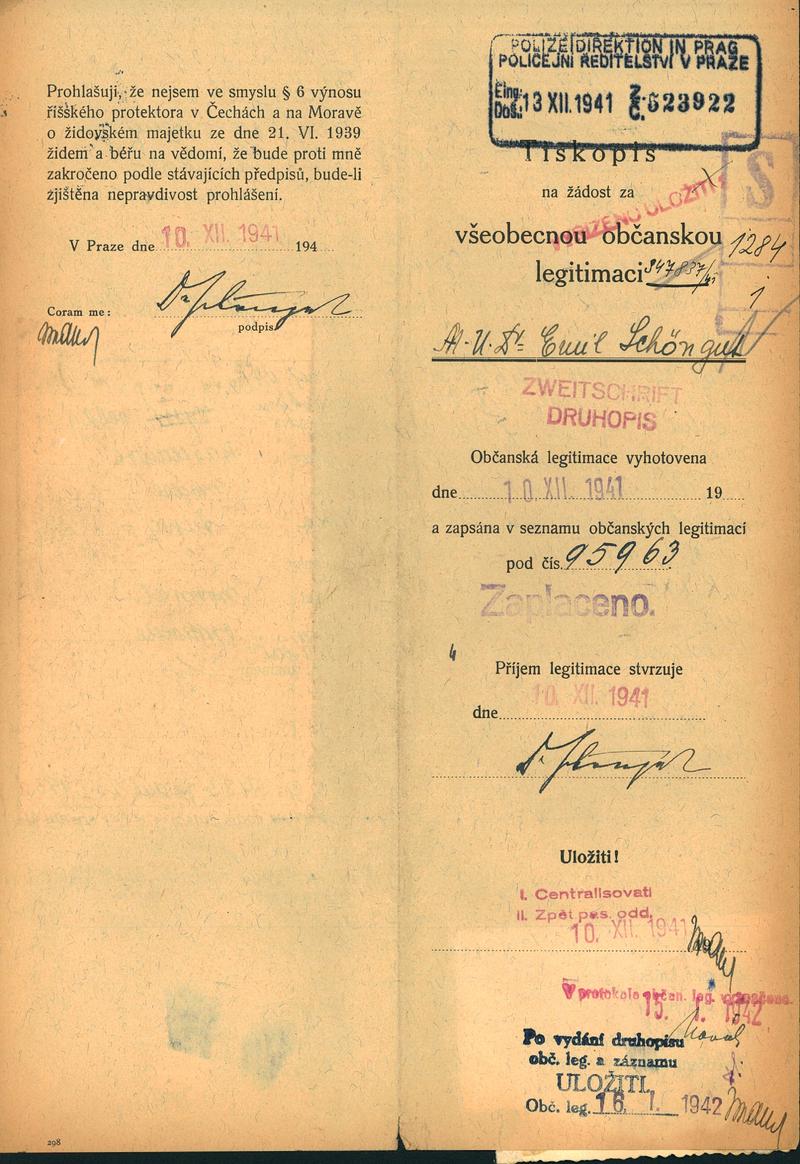 Prohlašuji, že nejsem ve smyslu § 6 výnosu
říšského protektora v Čechách a na Moravě
o židovském majetku ze dne 21. VI. 1939
židem a béřu na vědomí, že bude proti mně
zakročeno podle stávajících předpisů, bude-li
zjištěna nepravdivost prohlášení.
V Praze dne 10. XII. 1941 194
Coram me:
podpis
298
POLIZEIDIREKTION IN PRAG
POLICEJNÍ ŘEDITELSTVÍ V PRAZE
Eing. Doš.: 13 XII. 1941 Z. Č. 523922
Tiskopis
na žádost za
všeobecnou občanskou
legitimaci
1284
1
M.U.Dr. Emil Schöngut
ZWEITSCHRIFT
DRUHOPIS
Občanská legitimace vyhotovena
dne 10. XII. 1941 19
a zapsána v seznamu občanských legitimací
pod čís. 95963
Zaplaceno.
Příjem legitimace stvrzuje
10. XII. 1941
dne
Uložiti!
I. Centralisovati
II. Zpět pas. odd.
10. XII. 1941
V protokole občan. leg.
15. I. 1942
Po vydání druhopisu
obč. leg. a záznamu
ULOŽITI.
Obč. leg. 16. I. 1942